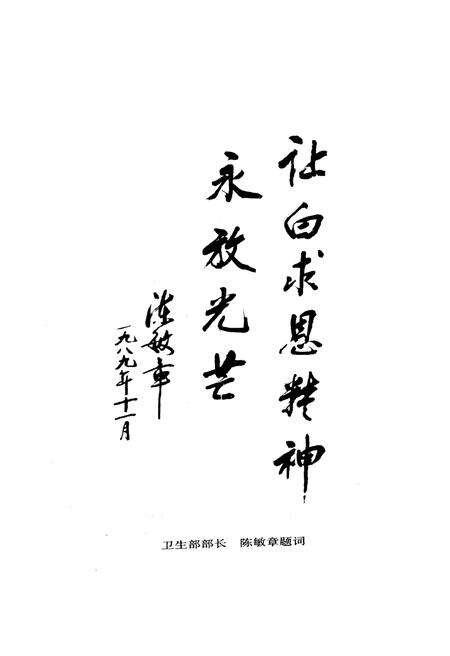 让白求恩精神
永放光芒
陈敏章
一九八九年十一月
卫生部部长 陈敏章题词